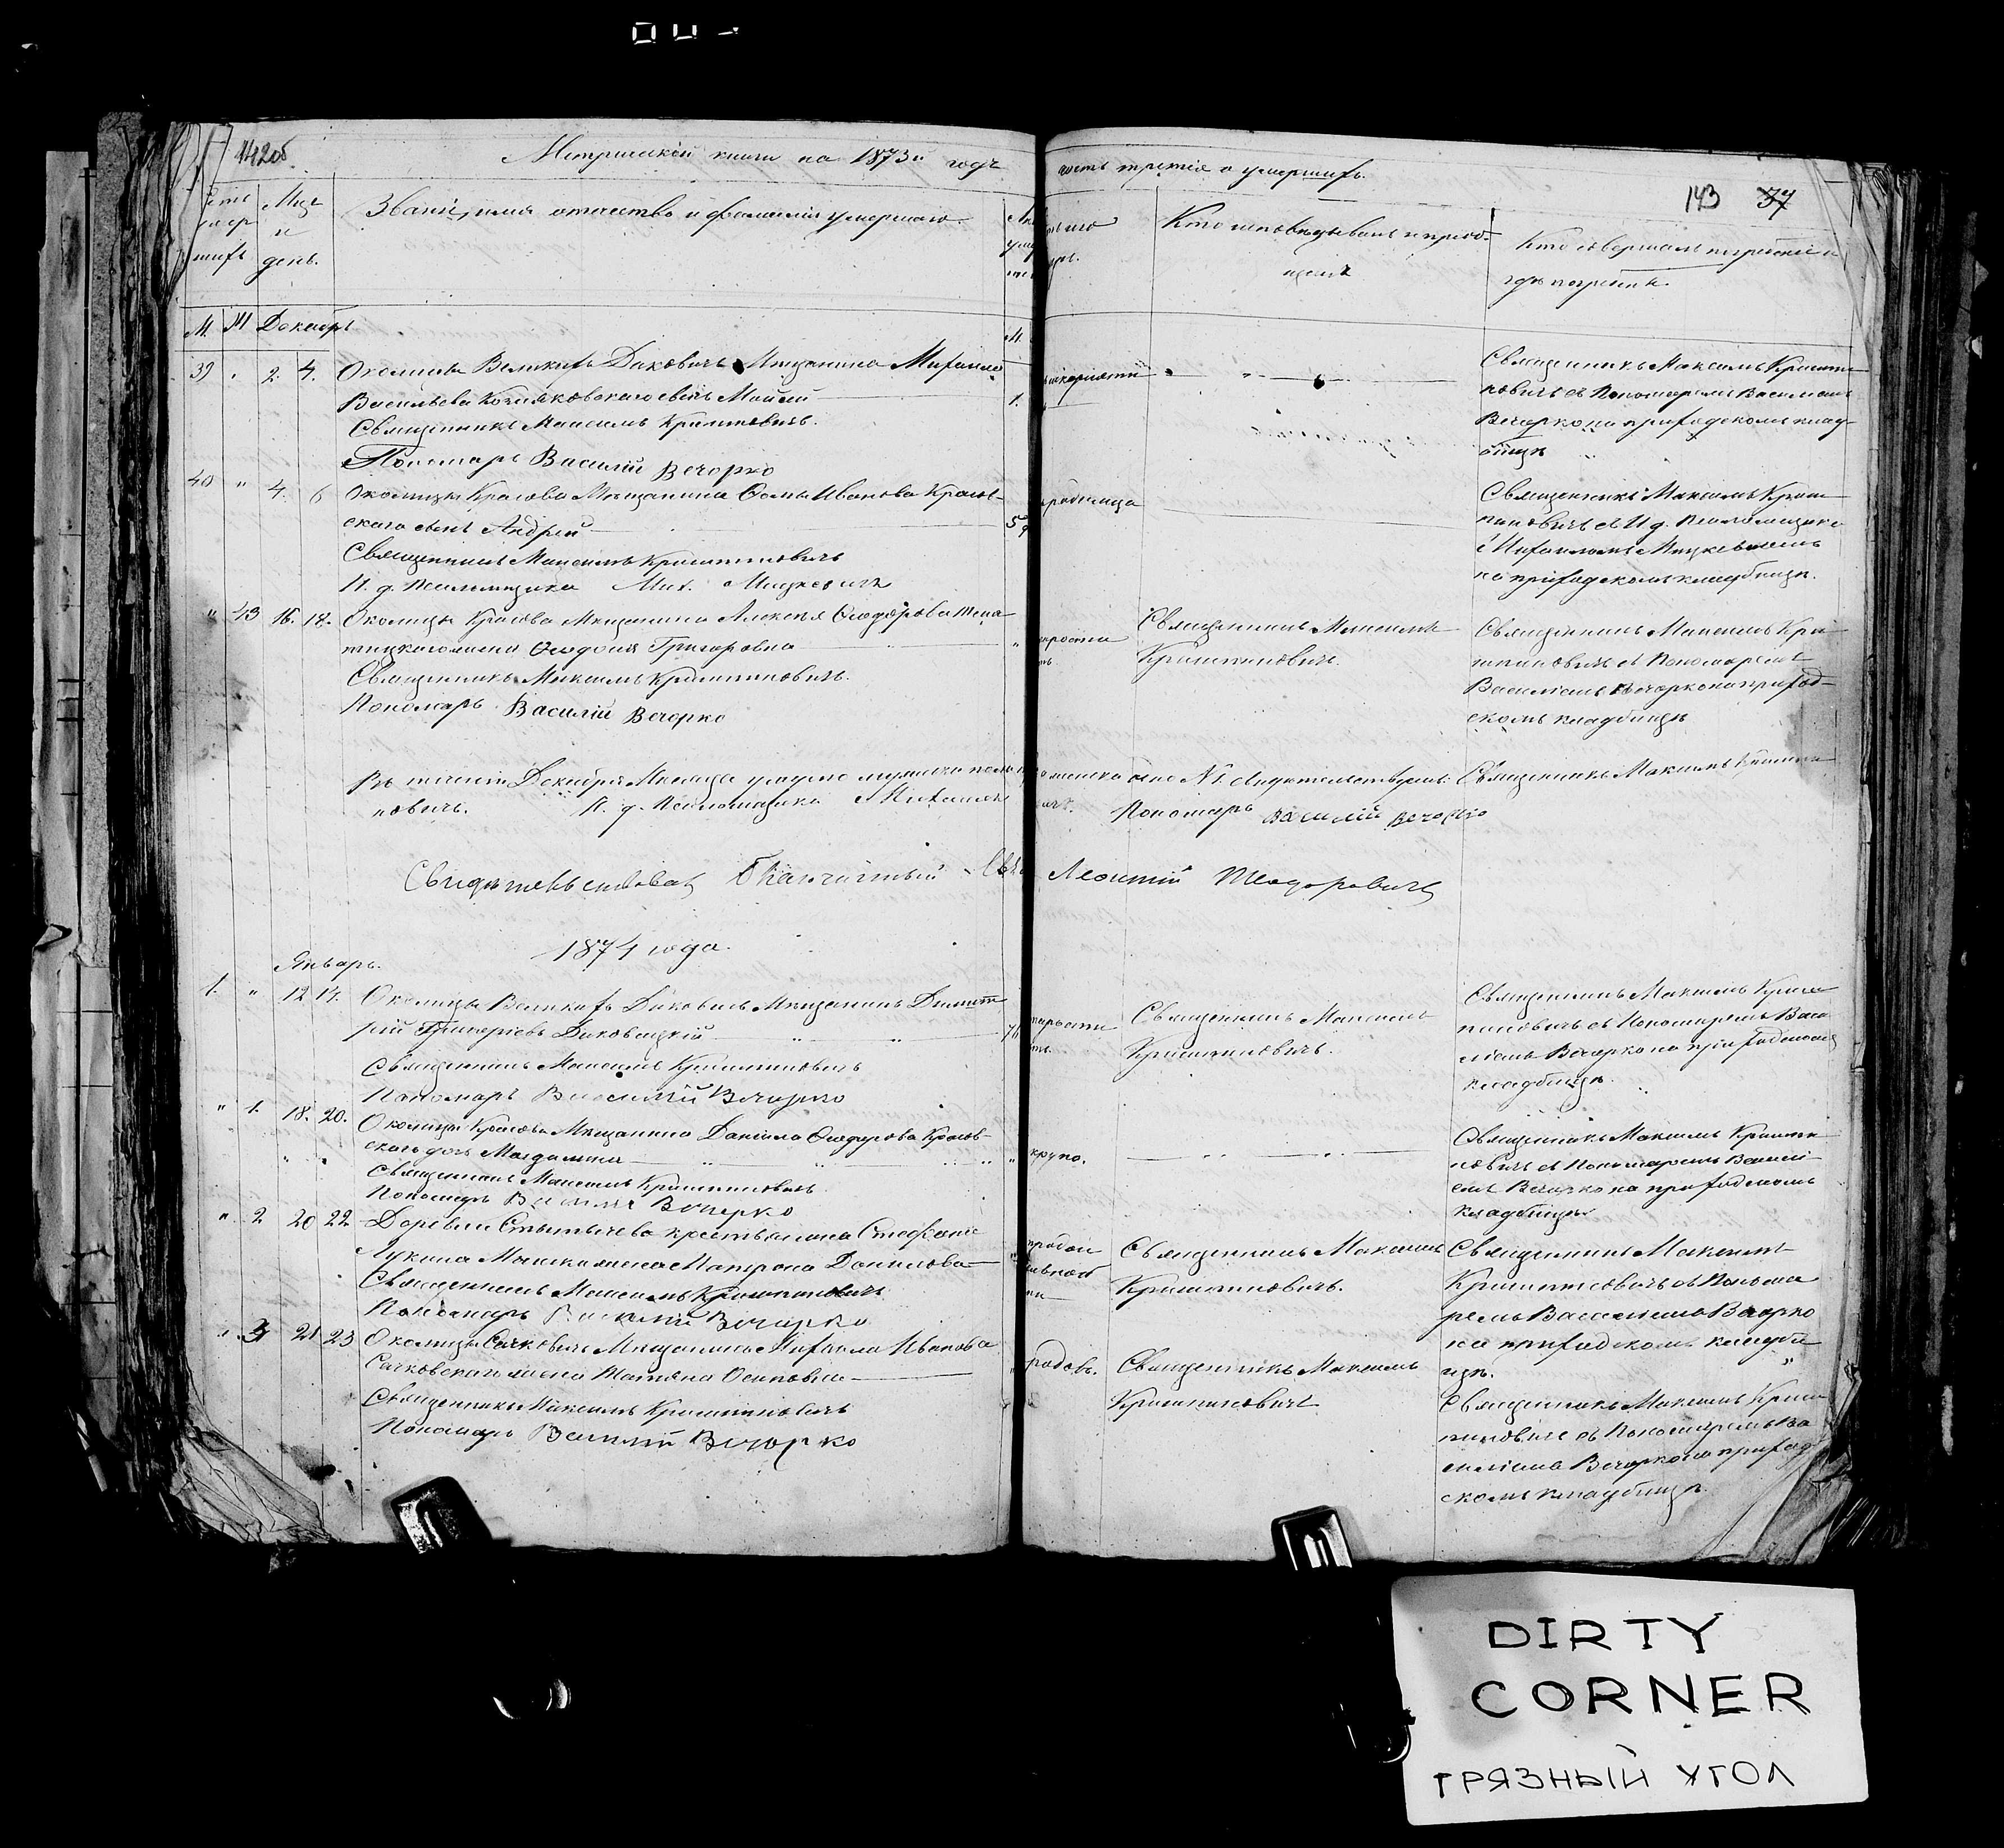 142об.
Метрической книги на 1873й годъ
часть третія о умершихъ.
143 37
Мѣс
и
день.
Званіе, имя отчество и фамилія умершаго.
Кто исповѣдывалъ и пріоб-
щалъ
Кто совершалъ погребеніе и
гдѣ погребены.
М. Ж Декабрь
М.
39 " 2. 4. Околицы Великихъ Диковичъ Мѣщанина Михаила
Васильева сынъ Моисей
1.
Священникъ Максимъ Криштиновичъ.
Пономарь Василій Вечорко
Священникъ Максимъ Кришти-
новичъ съ Пономаремъ Василіемъ
Вечорко на приходскомъ клад-
бищѣ
40 " 4. 6 Околицы Красова Мѣщанина Ѳомы Иванова Красов-
скаго сынъ Андрей
Священникъ Максимъ Криштиновичъ
И. д. Псаломщика Мих. Мицкевичъ
родимца
Священникъ Максимъ Кришти-
новичъ съ И. д. Псаломщика
Михаиломъ Мицкевичемъ
на приходскомъ кладбищѣ.
" 43 16. 18. Околицы Красова Мѣщанина Алексѣя Ѳеодорова
жена Ѳеодосія Григорьева
Священникъ Максимъ Криштиновичъ.
Пономарь Василій Вечорко
Священникъ Максимъ
Криштиновичъ.
Священникъ Максимъ Кри-
штиновичъ съ Пономаремъ
Василіемъ Вечорко на приход-
скомъ кладбищѣ
Въ теченіи Декабря Мѣсяца умерло мужеска пола
женска одно №1. свидѣтельствуемъ: Священникъ Максимъ Кришти-
новичъ. И. д. Псаломщика Михаилъ
Пономарь Василій Вечорко
Свидѣтельствовалъ Благочинный
Леонтій Теодоровичъ
1874 года.
Январь.
1. " 12 14. Околицы Великихъ Диковичъ Мѣщанинъ Димит-
рій Григорьевъ Диковицкій
Священникъ Максимъ Криштиновичъ
Пономарь Василій Вечорко
Священникъ Максимъ
Криштиновичъ.
Священникъ Максимъ Кришти-
новичъ съ Пономаремъ Васи-
ліемъ Вечорко на приходскомъ
кладбищѣ.
" 1. 18. 20. Околицы Красова Мѣщанина Даніила Ѳеодорова Красов-
скаго дочь Магдалина
Священникъ Максимъ Криштиновичъ
Пономарь Василій Вечорко
крупо.
Священникъ Максимъ Кришти-
новичъ съ Пономаремъ Василі-
емъ Вечорко на приходскомъ
кладбищѣ
" 2 20 22 Деревни Стытычева крестьянина Стефана
Лукина жена Матрона Данилова
Священникъ Максимъ Криштиновичъ
Пономарь Василій Вечорко
Священникъ Максимъ
Криштиновичъ.
Священникъ Максимъ
Криштиновичъ съ Понома-
ремъ Василіемъ Вечорко
на приходскомъ кладби-
щѣ.
" 3 21 23 Околицы Сачковичъ Мѣщанина Михаила Иванова
Сачковскаго жена Татьяна Осиповна
Священникъ Максимъ Криштиновичъ
Пономарь Василій Вечорко
родовъ.
Священникъ Максимъ
Криштиновичъ
Священникъ Максимъ Кришти-
новичъ съ Пономаремъ Ва-
силіемъ Вечорко на приход-
скомъ кладбищѣ.
DIRTY
CORNER
ГРЯЗНЫЙ УГОЛ